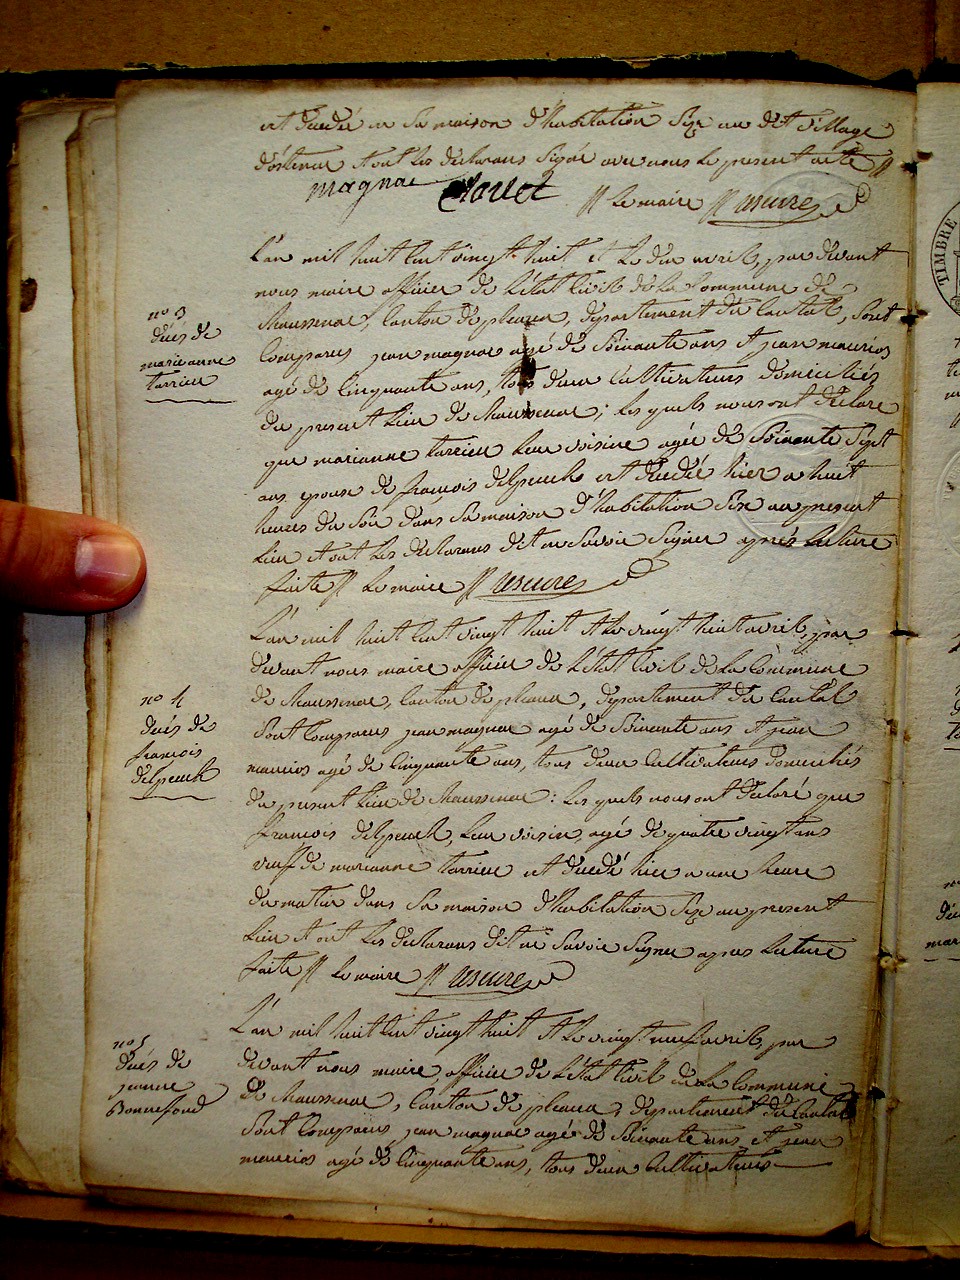 est décédé en sa maison d'habitation size au dit village
d'ostenac et ont les déclarans signé avec nous le présent acte //
magnac
// Le maire // uscure
L'an mil huit cent vingt huit et le dix avril, par devant
nous maire officier de l'état civil de la commune de
Chaussenac, canton de pleaux, département du Cantal, sont
comparus jean magnac agé de soixante ans et jean maurios
agé de cinquante ans, tous deux cultivateurs domiciliés
du present lieu de Chaussenac; les quels nous ont déclaré
que marianne tarrieu leur voisine agée de soixante sept
ans epouse de françois delpeuch est décédée hier a huit
heures du soir dans sa maison d'habitation size au present
lieu et ont les déclarans dit ne savoir signer après lecture
faite // Le maire // uscure
nº 3
décés de
marie anne
tarrieu
L'an mil huit cent vingt huit et le vingt huit avril, par
devant nous maire officier de l'état civil de la commune
de Chaussenac, canton de pleaux, département du Cantal
sont comparus jean magnac agé de soixante ans et jean
maurios agé de cinquante ans, tous deux cultivateurs domiciliés
du present lieu de Chaussenac: les quels nous ont déclaré que
françois delpeuch, leur voisin, agé de quatre vingt ans
veuf de marianne tarrieu est décédé hier a une heure
du matin dans sa maison d'habitation size au present
lieu et ont les déclarans dit ne savoir signer apres lecture
faite // Le maire // uscure
nº 4
décés de
françois
delpeuch
L'an mil huit cent vingt huit et le vingt neuf avril, par
devant nous maire, officier de l'état civil de la commune
de Chaussenac, canton de pleaux, département du Cantal
sont comparus jean magnac agé de soixante ans et jean
maurios agé de cinquante ans, tous deux cultivateurs
nº 5
décés de
jeanne
Bonnefond
TIMBRE